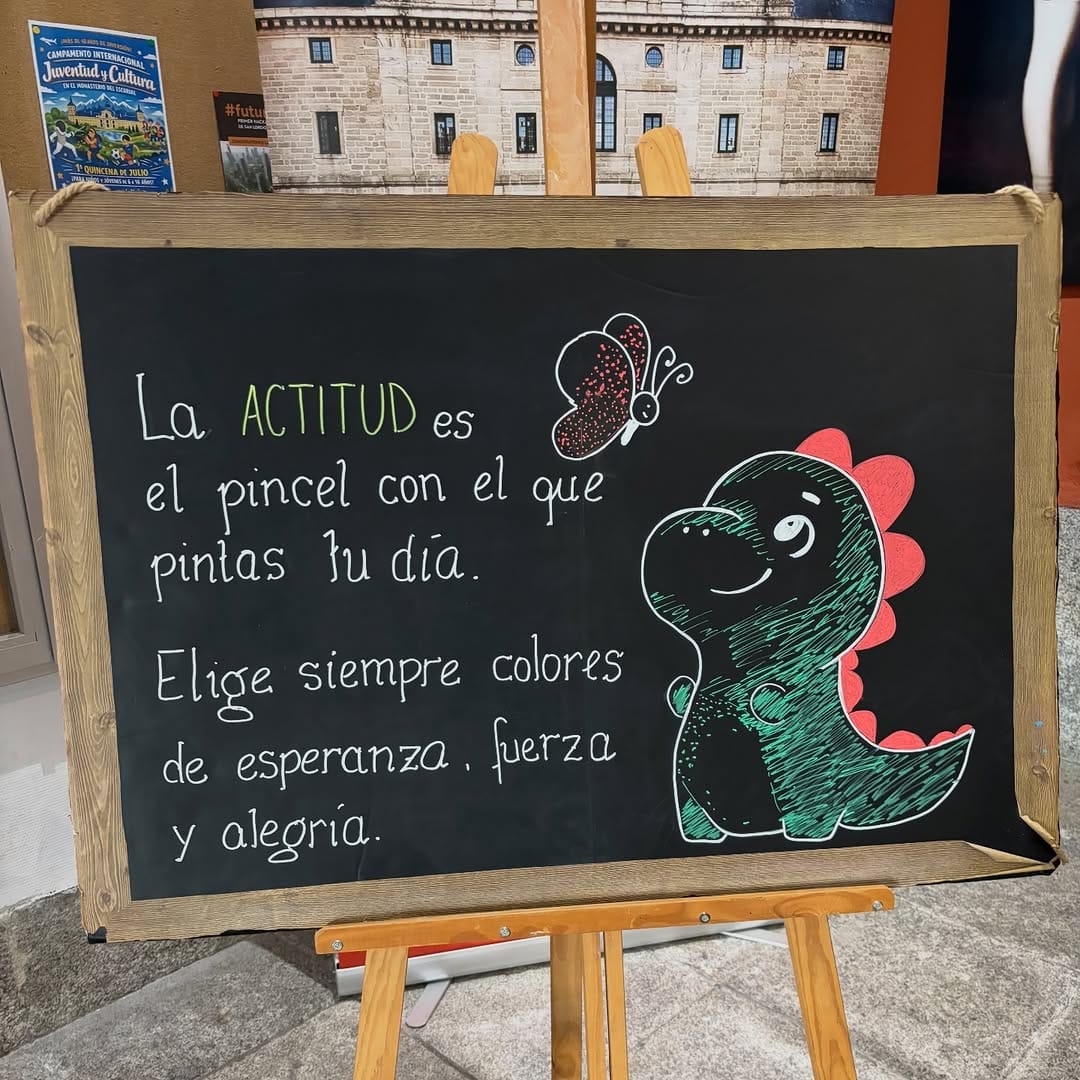 ¡MÁS DE 40 AÑOS DE DIVERSIÓN!
CAMPAMENTO INTERNACIONAL
Juventud y Cultura
EN EL MONASTERIO DEL ESCORIAL
1ª QUINCENA DE JULIO
¡PARA NIÑOS Y JÓVENES DE 6 A 16 AÑOS!
PRIMER
DE SAN LORENZO
La ACTITUD es
el pincel con el que
pintas tu día.
Elige siempre colores
de esperanza, fuerza
y alegría.